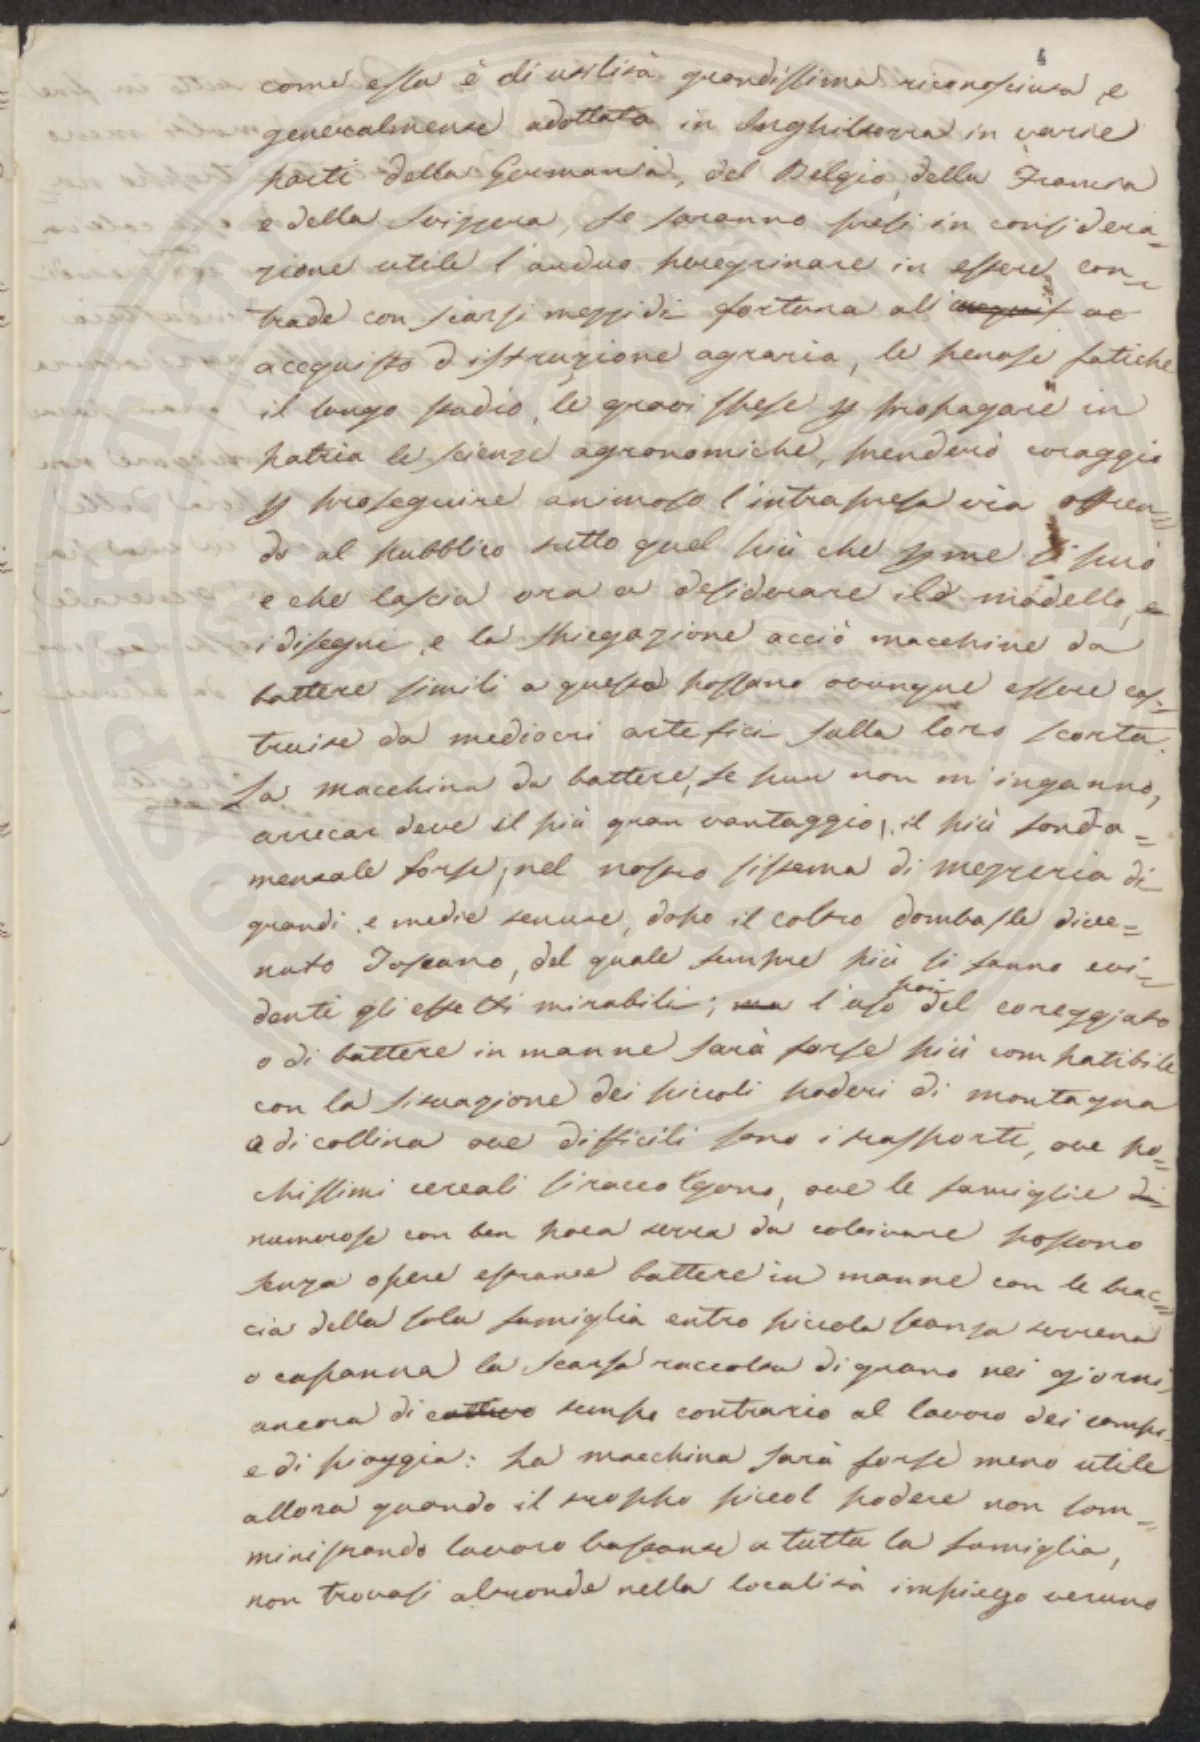 come essa è di utilità grandissima riconosciuta, e
generalmente adottata in Inghilterra in varie
parti della Germania, del Belgio, della Francia
e della Svizzera, se saranno presi in considera=
zione utile l'arduo peregrinare in estere con=
trade con scarsi mezzi di fortuna all'
acquisto d'istruzione agraria, le penose fatiche
il lungo studio, le gravi spese p propagare in
patria le scienze agronomiche, prenderò coraggio
p proseguire animoso l'intrapresa via offren=
do al pubblico tutto quel più che p me si può
e che lascia ora a desiderare il modello, e
i disegni, e la spiegazione acciò macchine da
battere simili a questa possano ovunque essere cos=
truite da mediocri artefici sulla loro scorta.
La macchina da battere, se pur non m'inganno,
arrecar deve il più gran vantaggio, il più fonda=
mentale forse, nel nostro sistema di mezzeria di
grandi e medie tenute, dopo il coltro Dombasle dive=
nuto Toscano, del quale sempre più si fanno evi=
denti gli effetti mirabili; ma l'uso poi del coreggiato
o di battere in manne sarà forse più compatibile
con la situazione dei piccoli poderi di montagna
e di collina ove difficili sono i trasporti, ove po=
chissimi cereali si raccolgono, ove le famiglie di
numerose con ben poca terra da coltivare possono
senza opere estranee battere in manne con le brac=
cia della sola famiglia entro piccola stanza terrena
o capanna la scarsa raccolta di grano nei giorni
ancora di cattivo tempo contrario al lavoro dei campi
e di pioggia: La macchina sarà forse meno utile
allora quando il troppo piccol podere non som=
ministrando lavoro bastante a tutta la famiglia,
non trovasi altronde nella località impiego veruno